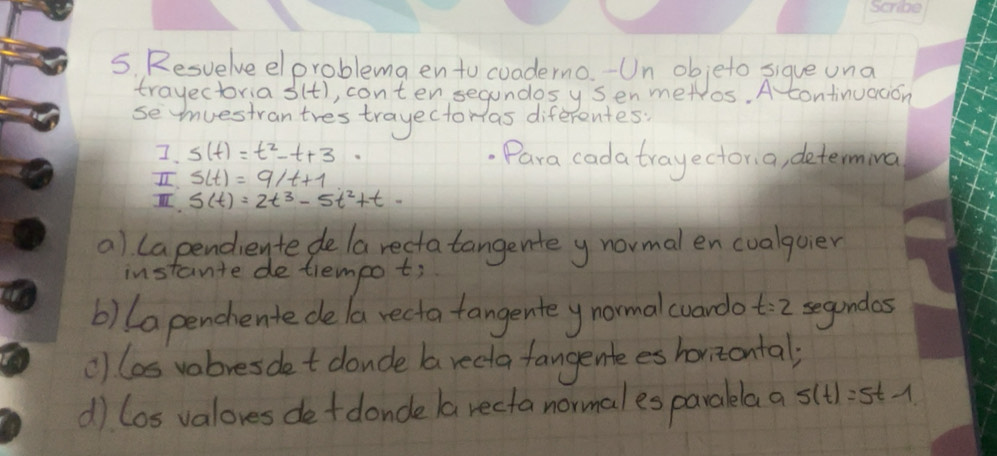 Scribe
5. Resuelve el problema en tu cuaderno. -Un objeto sigue una
trayectoria s(t), con t en segundos y s en metros. A continuación
se muestran tres trayectorias diferentes:
I. s(t) = t²-t+3 .
II. s(t) = 9/t+1
III. s(t) = 2t³-5t²+t.
• Para cada trayectoria, determina
a). La pendiente de la recta tangente y normal en cualquier
instante de tiempo t;
b) La pendiente de la recta tangente y normal cuando t=2 segundos
c). Los valores de t donde la recta tangente es horizontal;
d). Los valores de t donde la recta normal es paralela a s(t)=5t-1.